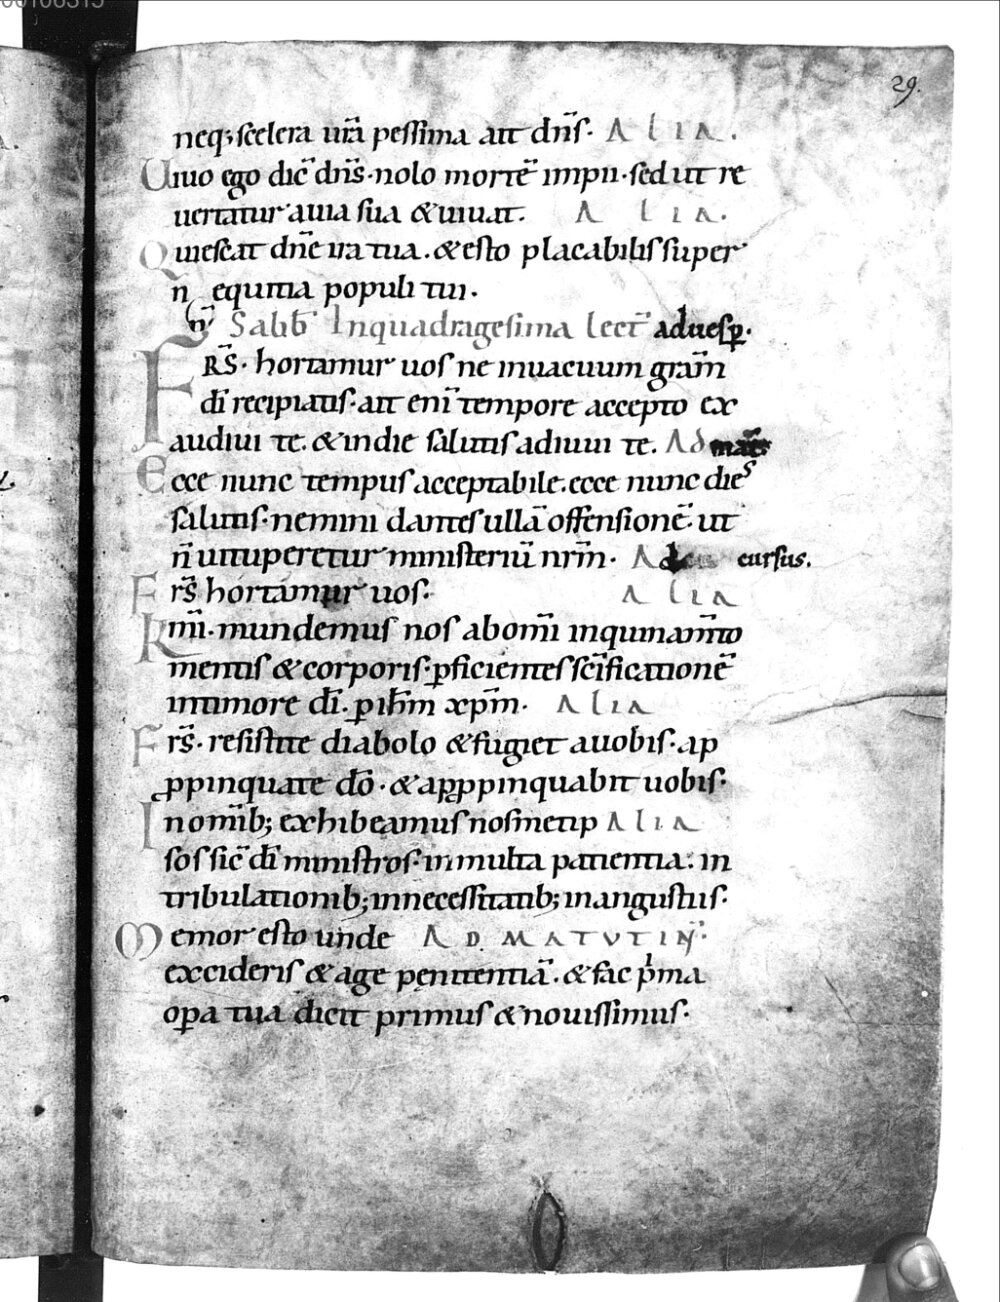 00106315
29.
neq; scelera ur̄a pessima ait dn̄s· ALIA.
Uiuo ego dic̄ dn̄s· nolo mortē impii· sed ut re
uertatur a uia sua & uiuat. ALIA.
Quiescat dn̄e ira tua. & esto placabilis super
n equitia populi tui.
Sabb̄ In quadragesima lect̄ ad uesp̄.
FRS̄· hortamur uos ne in uacuum gram̄
dī recipiatis· ait enī tempore accepto ex
audiui te. & in die salutis adiuui te. Ad mat̄
Ecce nunc tempus acceptabile. ecce nunc dies
salutis· nemini dantes ullā offensionē. ut
n̄ uituperetur ministeriū nr̄m· Ad cursus.
Frs̄ hortamur uos· ALIA
Km̄i· mundemus nos ab om̄i inquinam̄to
mentis & corporis· ꝑficientes sc̄ificationē
in timore dī· ꝑ ih̄m xp̄m· ALIA
Frs̄· resistite diabolo & fugiet a uobis· ap
ꝓpinquate dō· & apꝓpinquabit uobis·
In om̄ib; exhibeamus nosmetip ALIA
sos sic̄ dī ministros· in multa patientia· in
tribulationib; in necessitatib; in angustiis·
Memor esto unde AD MATUTIN̄·
excideris & age penitentiā. & fac p̄ma
oꝑa tua dicit primus & nouissimus·